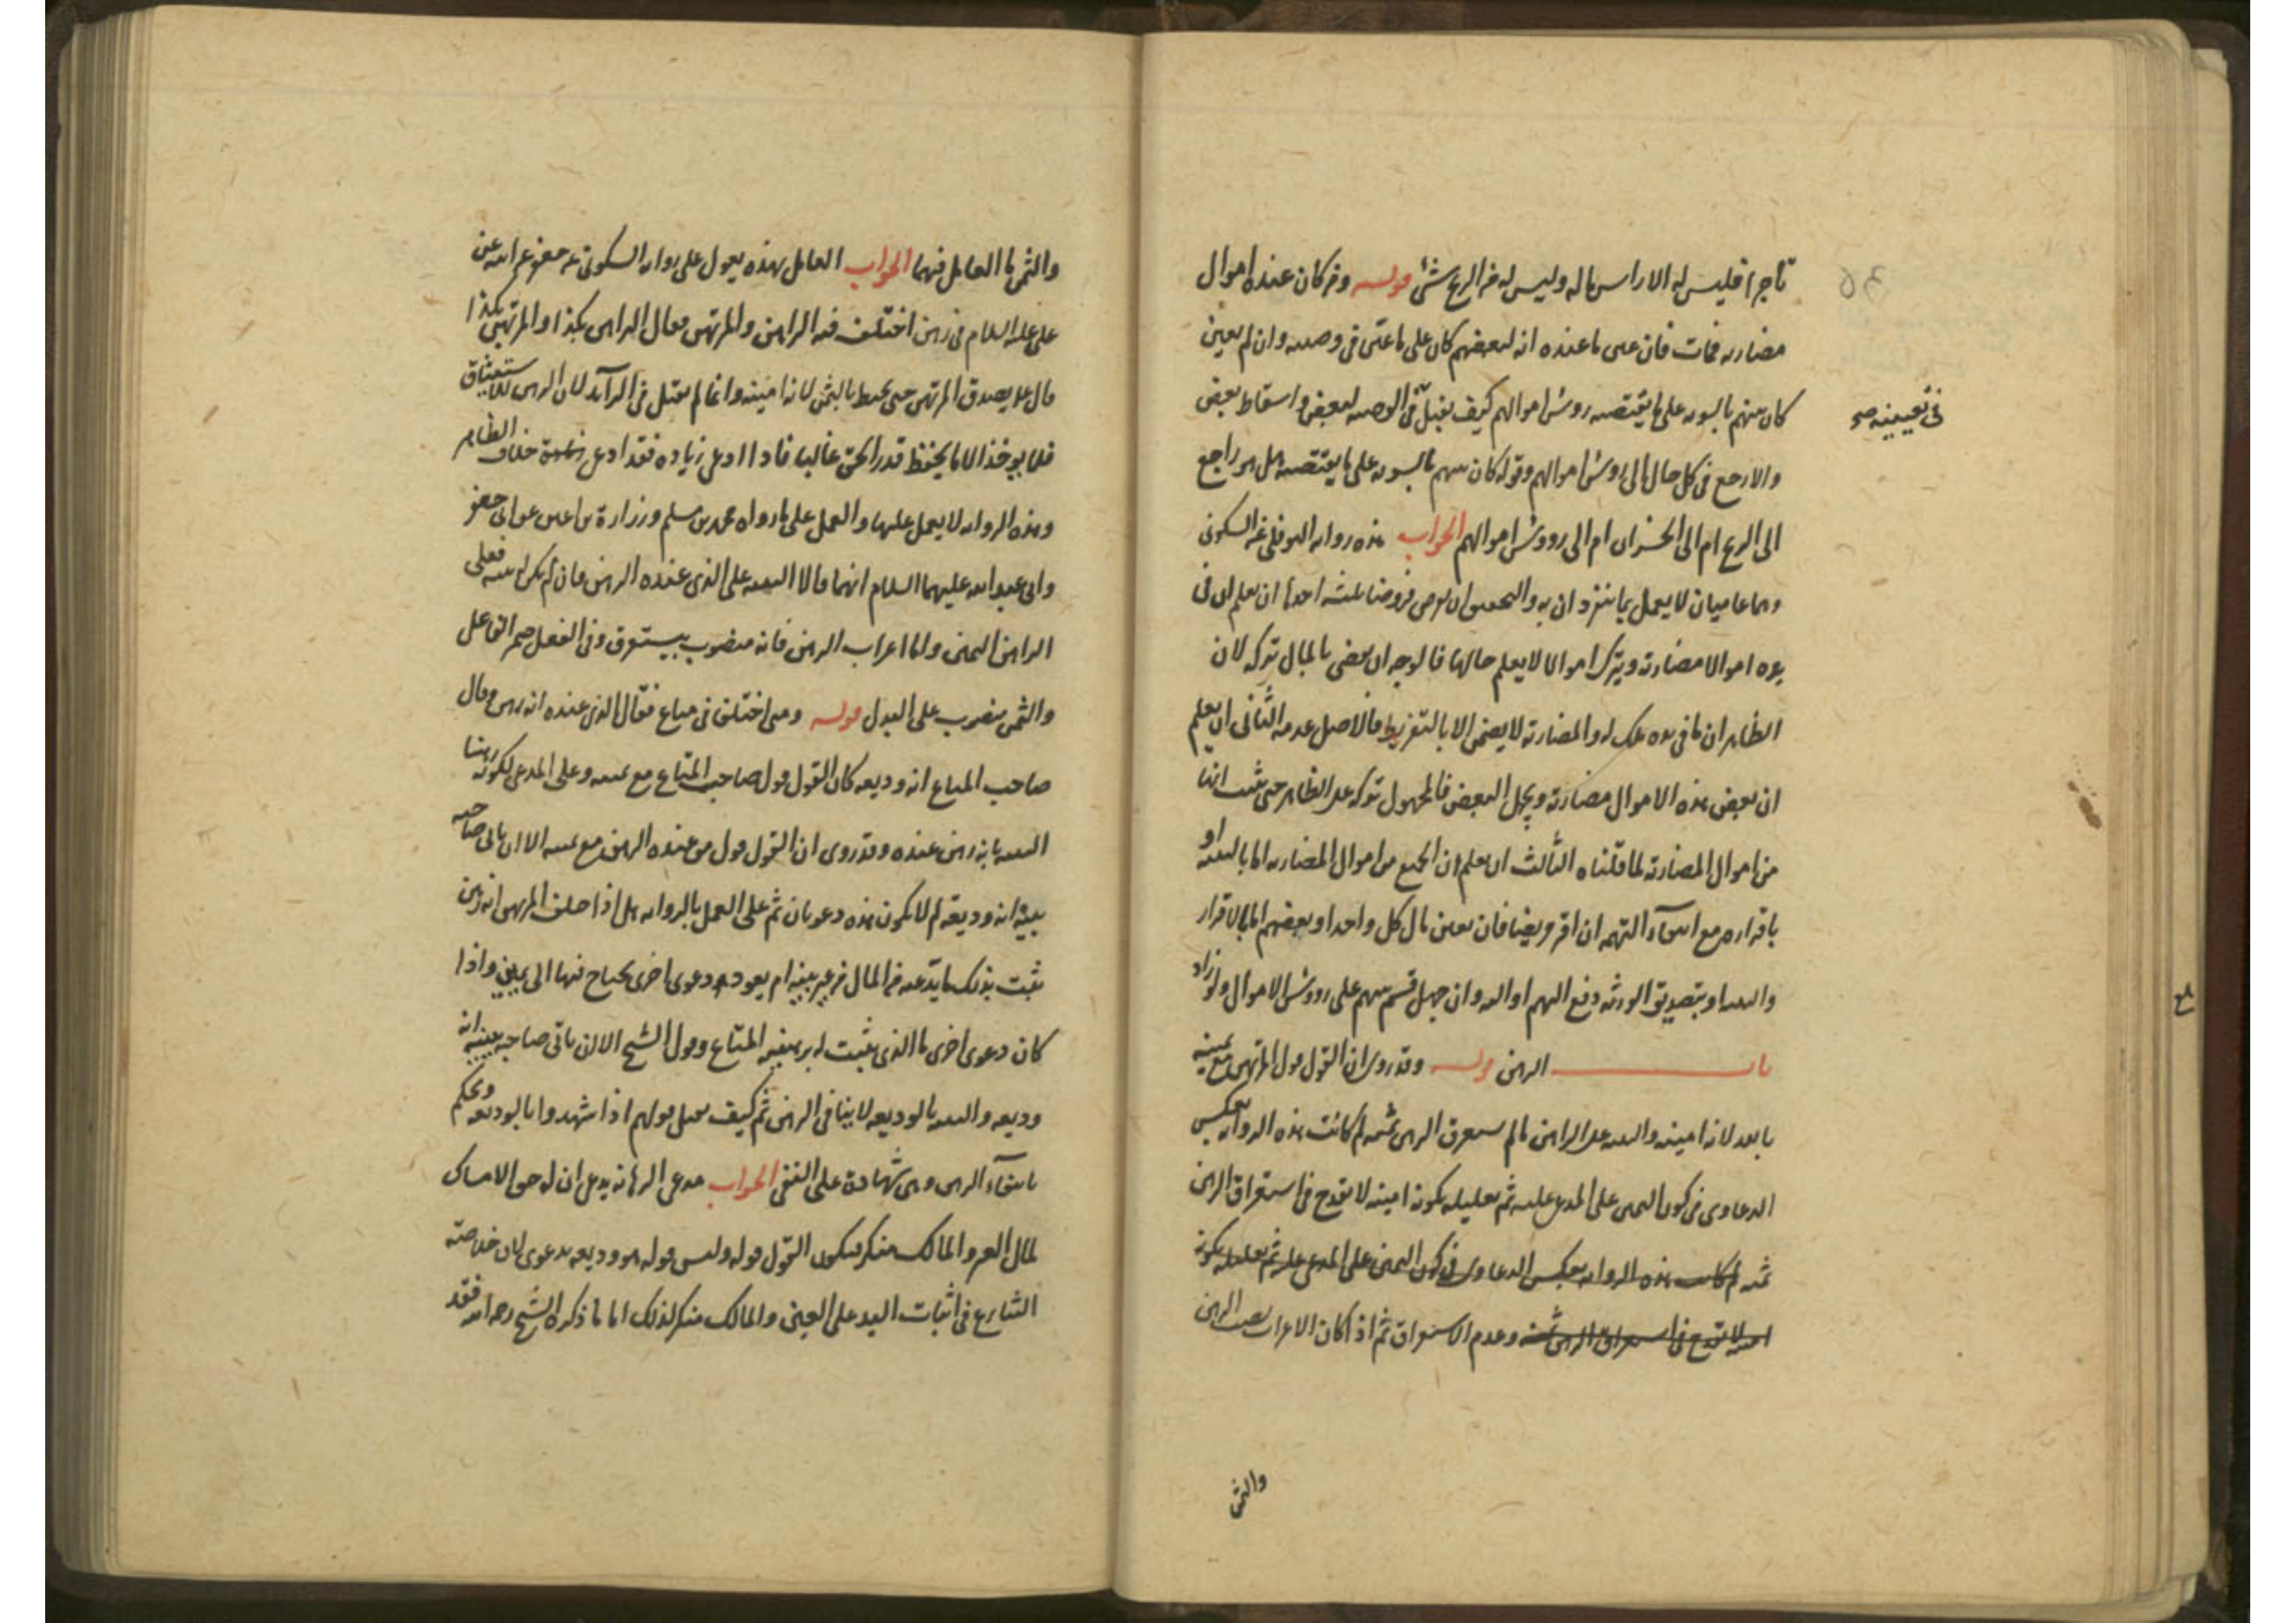 تاجرا فليس له الا راس ماله وليس له من الربح شئ قوله ومن كان عنده اموال
مضاربه فمات فان عين ما عنده انه لبعضهم كان على ما عين فى وصيته وان لم يعين
كان بينهم بالسويه على ما يقتضيه روس اموالهم كيف يقبل فى الوصيه لبعض واسقاط بعض
فى تعيينه صح
والارجع فى كل حال الى روس اموالهم وقوله كان بينهم بالسويه على ما يقتضيه هل هو راجع
الى الربح ام الى الخسران ام الى رووس اموالهم الجواب هذه روايه النوفلى عن السكونى
وهما عاميان لا يعمل بما ينفردان به والتحقيق ان نفرض فروضا ثلثه احدها ان يعلم ان فى
يده اموالا مضاربة ويترك اموالا لا يعلم حالها فالوجه ان يقضى بالمال تركه لان
الظاهر ان ما فى يده ملك له والمضاربة لا يضمن الا بالتفريط فالاصل عدمه الثانى ان يعلم
ان بعض هذه الاموال مضاربة ويجهل البعض فالمجهول تركه على الظاهر حتى يثبت انها
من اموال المضاربة لما قلناه الثالث ان يعلم ان الجميع من اموال المضاربه اما بالبينه او
باقراره مع انتفاء التهمه ان اقر مريضا فان تعين مال كل واحد او بعضهم اما بالاقرار
والبينه او بتصديق الورثه دفع اليهم او اليه وان جهل قسم بينهم على رووس الاموال ولو زاد
باب الرهن قوله وقد روى ان القول قول المرتهن مع يمينه
بالله لانه امينه والبينه على الراهن ما لم يستغرق الرهن ثمنه لم كانت هذه الروايه بعكس
الدعاوى فى كون اليمين على المدعى عليه ثم تعليله بكونه امينه لا يقدح فى استغراق الرهن
ثمنه لم كانت هذه الروايه بعكس الدعاوى فى كون اليمين على المدعى عليه ثم تعليله بكونه
امينه لا يقدح فى استغراق الرهن ثمنه وعدم الاستغراق ثم اذا كان الاعراب بنصب الرهن
والثمن
والثمن ما العامل فيهما الجواب العامل بهذه يعول على روايه السكونى عن جعفر عن ابيه عن
على عليه السلام فى رهن اختلف فيه الراهن والمرتهن فقال الراهن بكذا والمرتهن بكذا
قال على يصدق المرتهن حتى يحيط بالثمن لانه امينه وانما لم يقبل فى الزائد لان الرهن للاستيثاق
فلا يوخذ الا ما يحفظ قدر الحق غالبا فاذا ادعى زياده فقد ادعى خلاف الظاهر
وهذه الروايه لا يعمل عليها والعمل على ما رواه محمد بن مسلم وزرارة بن اعين عن ابى جعفر
وابى عبد الله عليهما السلام انهما قالا البينه على الذى عنده الرهن فان لم يكن له بينه فعلى
الراهن اليمين واما اعراب الرهن فانه منصوب بيستغرق وفى الفعل ضمير الفاعل
والثمن منصوب على البدل قوله ومتى اختلف فى متاع فقال الذى عنده انه رهن وقال
صاحب المتاع انه وديعه كان القول قول صاحب المتاع مع يمينه وعلى المدعى لكونه رهنا
البينه بانه رهن عنده وقد روى ان القول قول من عنده الرهن مع يمينه الا ان ياتى صاحبه
ببينه انه وديعة لم لا يكون هذه دعويان ثم على العمل بالروايه هل اذا حلف المرتهن انه رهن
يثبت بذلك ما يدعيه من المال من غير بينه ام يعود دعوى اخرى يحتاج فيها الى يمين واذا
كان دعوى اخرى ما الذى يثبت له بيمينه المتاع وقول الشيخ الا ان ياتى صاحبه ببينه انه
وديعه والبينه بالوديعه لا ينافى الرهن ثم كيف يقبل قولهم اذا شهدوا بالوديعه ويحكم
بانتفاء الرهن وهى شهادة على النفى الجواب مدعى الرهانه يدعى ان له حق الامساك
لمال الغير والمالك منكر فيكون القول قوله وليس قوله هو وديعه بدعوى لان خلاصته
التنازع فى اثبات اليد على العين والمالك منكر لذلك اما ما ذكره الشيخ رحمه الله فقد